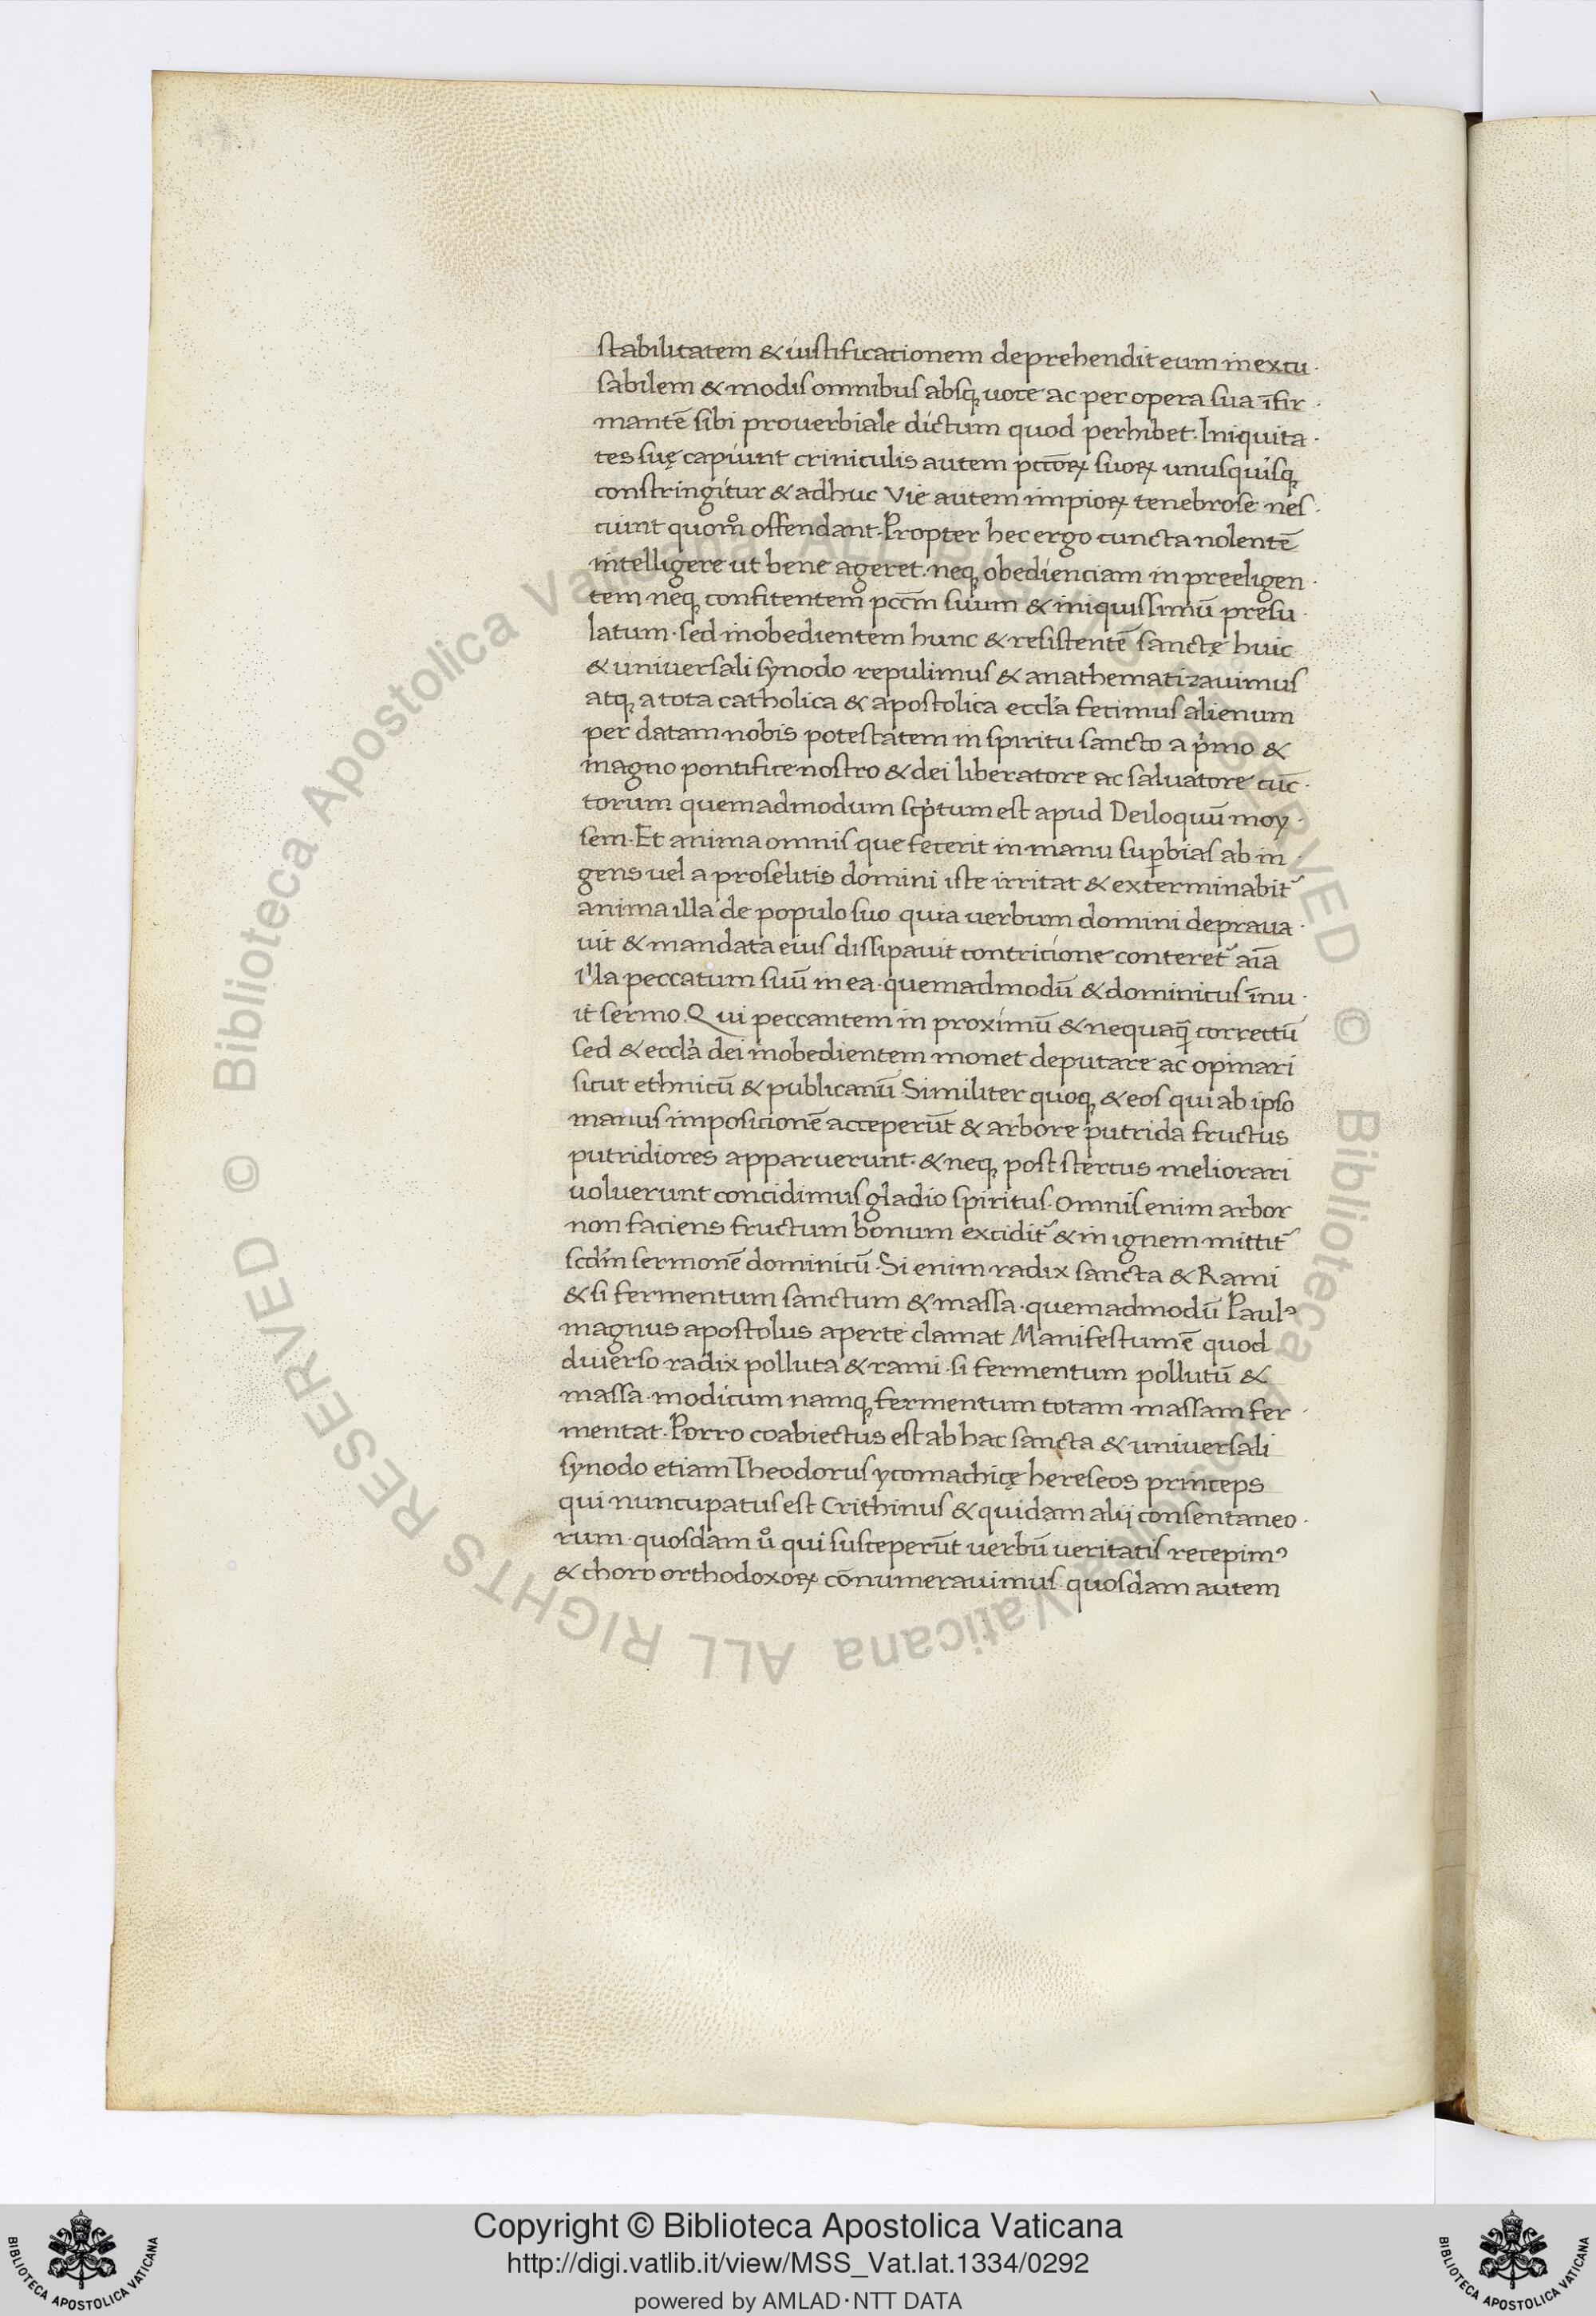 stabilitatem & iustificationem deprehendit eum inexcu·
sabilem & modis omnibus absq; uoce ac per opera sua īfir·
mantē sibi prouerbiale dictum quod perhibet· Iniquita·
tes suę capiunt criniculis autem pctōꝝ suoꝝ unusquisq;
constringitur & adhuc Vie autem impioꝝ tenebrose nes·
ciunt quomͦ offendant· Propter hec ergo cuncta nolentē
intelligere ut bene ageret· neq; obedienciam in preeligen·
tem neq; confitentem pccm̄ suum & iniquissimū presu·
latum· sed inobedientem hunc & resistentē sanctę huic
& uniuersali synodo repulimus & anathematizauimus
atq; a tota catholica & apostolica eccl'a fecimus alienum
per datam nobis potestatem in spiritu sancto a pͥmo &
magno pontifice nostro & dei liberatore ac saluatore cūc·
torum quemadmodum scpͥtum est apud Deiloquū moy·
sem· Et anima omnis que fecerit in manu suꝑbias ab in·
gens uel a proselitis domini iste irritat & exterminabit᷑
anima illa de populo suo quia uerbum domini depraua·
uit & mandata eius dissipauit contricione conteret᷑ aīa
illa peccatum suū in ea· quemadmodū & dominicus īnu·
it sermo· Qui peccantem in proximū & nequaq̄ correctū
sed & eccl'a dei inobedientem monet deputare ac opinari
sicut ethnicū & publicanū· Similiter quoq; & eos qui ab ipso
manus imposicionē acceperūt & arbore putrida fructus
putridiores apparuerunt· & neq; post stercus meliorari
uoluerunt concidimus gladio spiritus· Omnis enim arbor
non faciens fructum bonum excidit᷑ & in ignem mittit᷑
scd'm sermonē dominicū· Si enim radix sancta & Rami
& si fermentum sanctum & massa· quemadmodū Paulꝰ
magnus apostolus aperte clamat Manifestum ē quod
diuerso radix polluta & rami· si fermentum pollutū &
massa· modicum namq; fermentum totam massam fer·
mentat· Porro coabiectus est ab hac sancta & uniuersali
synodo etiam Theodorus ycomachicę hereseos princeps
qui nuncupatus est Crithinus & quidam alij consentaneo·
rum· quosdam uͦ qui susceperūt uerbū ueritatis recepimꝰ
& choro orthodoxoꝝ cōnumerauimus· quosdam autem
Copyright © Biblioteca Apostolica Vaticana
http://digi.vatlib.it/view/MSS_Vat.lat.1334/0292
powered by AMLAD·NTT DATA